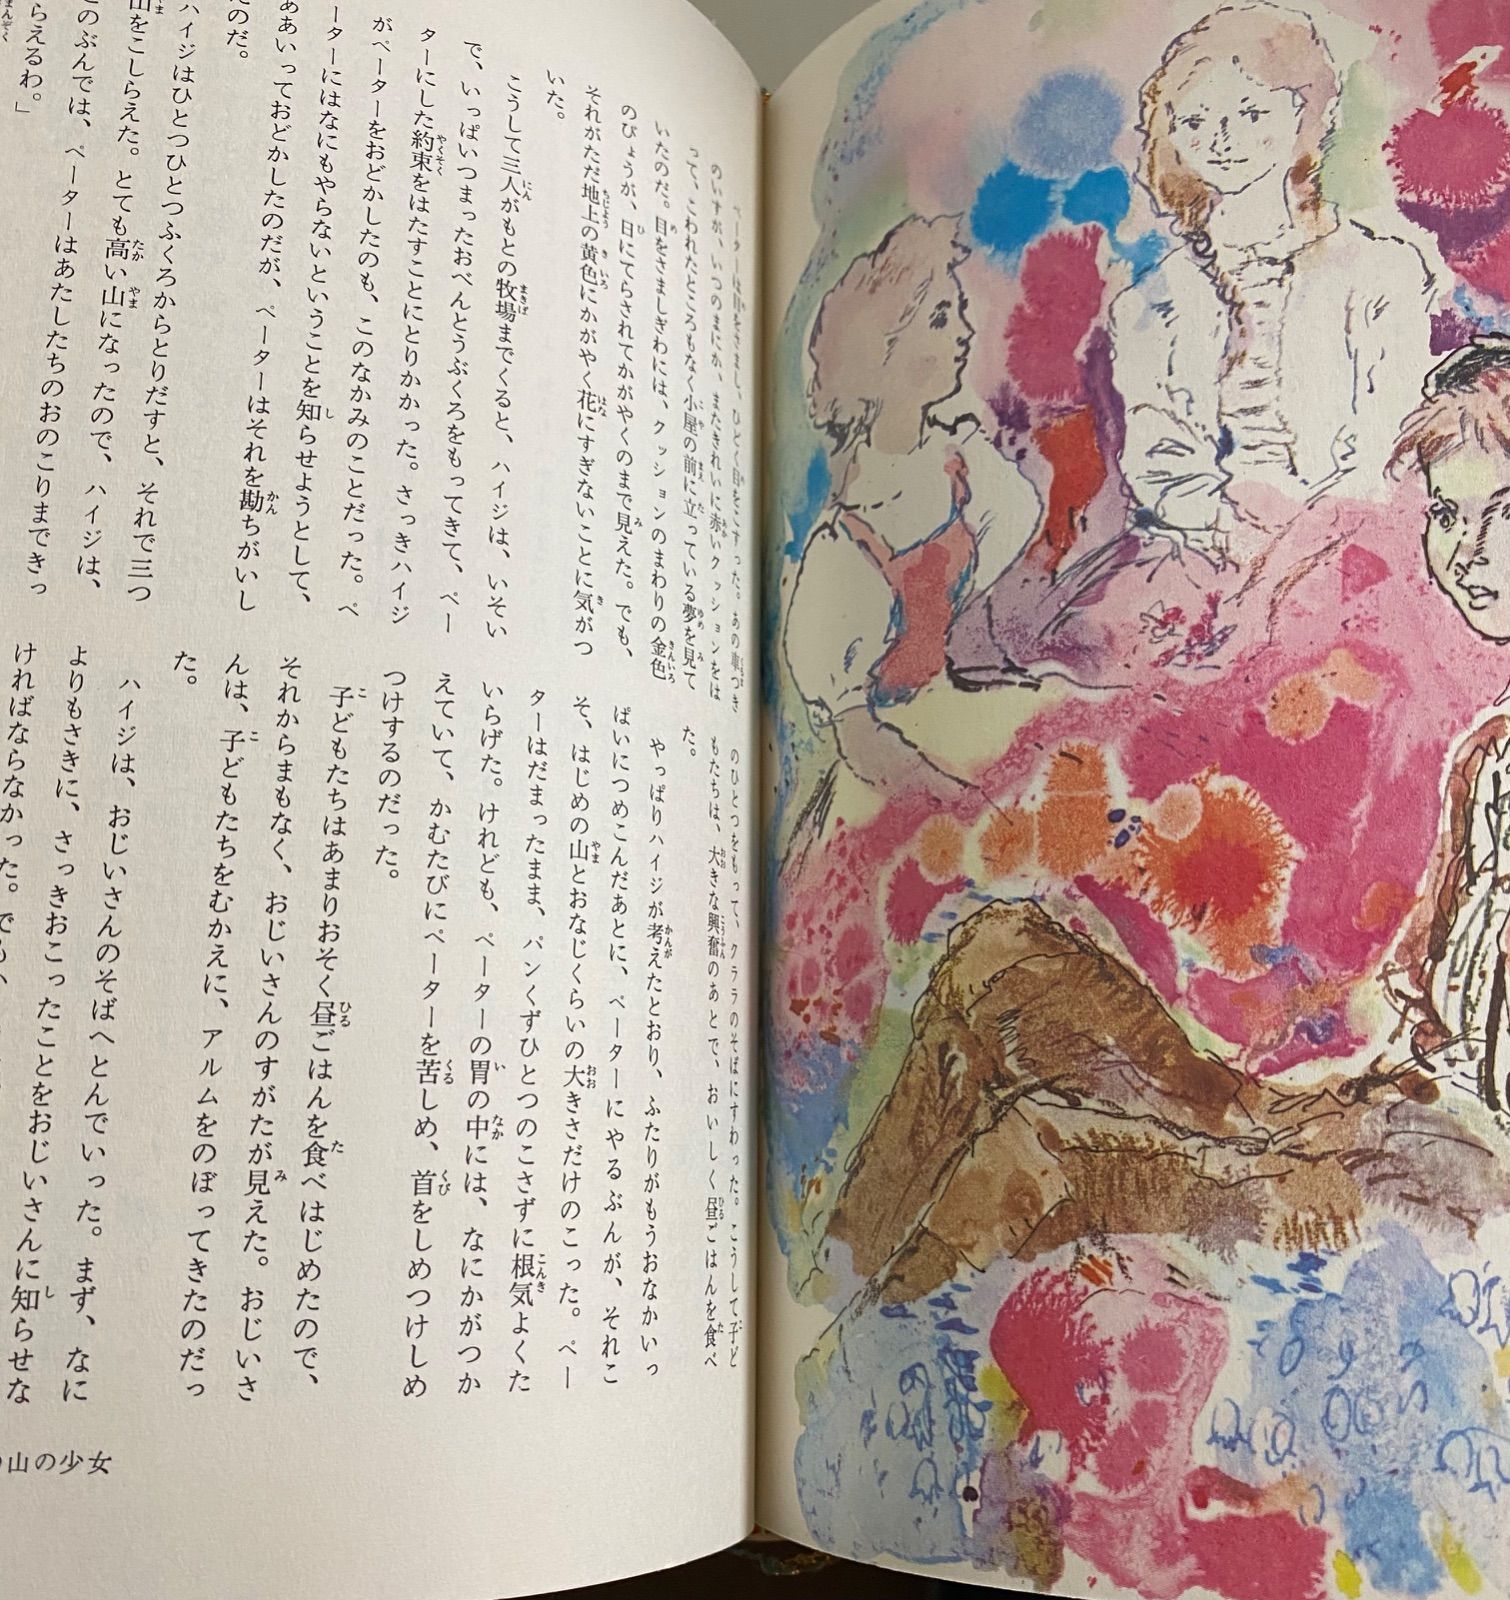 ペーターは目をさまし、ひどく目をこすった。あの車つき
のいすが、いつのまにか、またきれいに赤いクッションをは
って、こわれたところもなく小屋の前に立っている夢を見て
いたのだ。目をさましぎわには、クッションのまわりの金色
のびょうが、日にてらされてかがやくのまで見えた。でも、
それがただ地上の黄色にかがやく花にすぎないことに気がつ
いた。
こうして三人がもとの牧場までくると、ハイジは、いそい
で、いっぱいつまったおべんとうぶくろをもってきて、ペー
ターにした約束をはたすことにとりかかった。さっきハイジ
がペーターをおどかしたのも、このなかみのことだった。ペ
ーターにはなにもやらないということを知らせようとして、
ああいっておどかしたのだが、ペーターはそれを勘ちがいし
たのだ。
ハイジはひとつひとつふくろからとりだすと、それで三つ
山をこしらえた。とても高い山になったので、ハイジは、
このぶんでは、ペーターはあたしたちのおのこりまできっ
らえるわ。」
のひとつをもって、クララのそばにすわった。こうして子ど
もたちは、大きな興奮のあとで、おいしく昼ごはんを食べ
た。
やっぱりハイジが考えたとおり、ふたりがもうおなかいっ
ぱいにつめこんだあとに、ペーターにやるぶんが、それこ
そ、はじめの山とおなじくらいの大きさだけのこった。ペー
ターはだまったまま、パンくずひとつのこさずに根気よくた
いらげた。けれども、ペーターの胃の中には、なにかがつか
えていて、かむたびにペーターを苦しめ、首をしめつけしめ
つけするのだった。
子どもたちはあまりおそく昼ごはんを食べはじめたので、
それからまもなく、おじいさんのすがたが見えた。おじいさ
んは、子どもたちをむかえに、アルムをのぼってきたのだっ
た。
ハイジは、おじいさんのそばへとんでいった。まず、なに
よりもさきに、さっきおこったことをおじいさんに知らせな
ければならなかった。でも、
山の少女